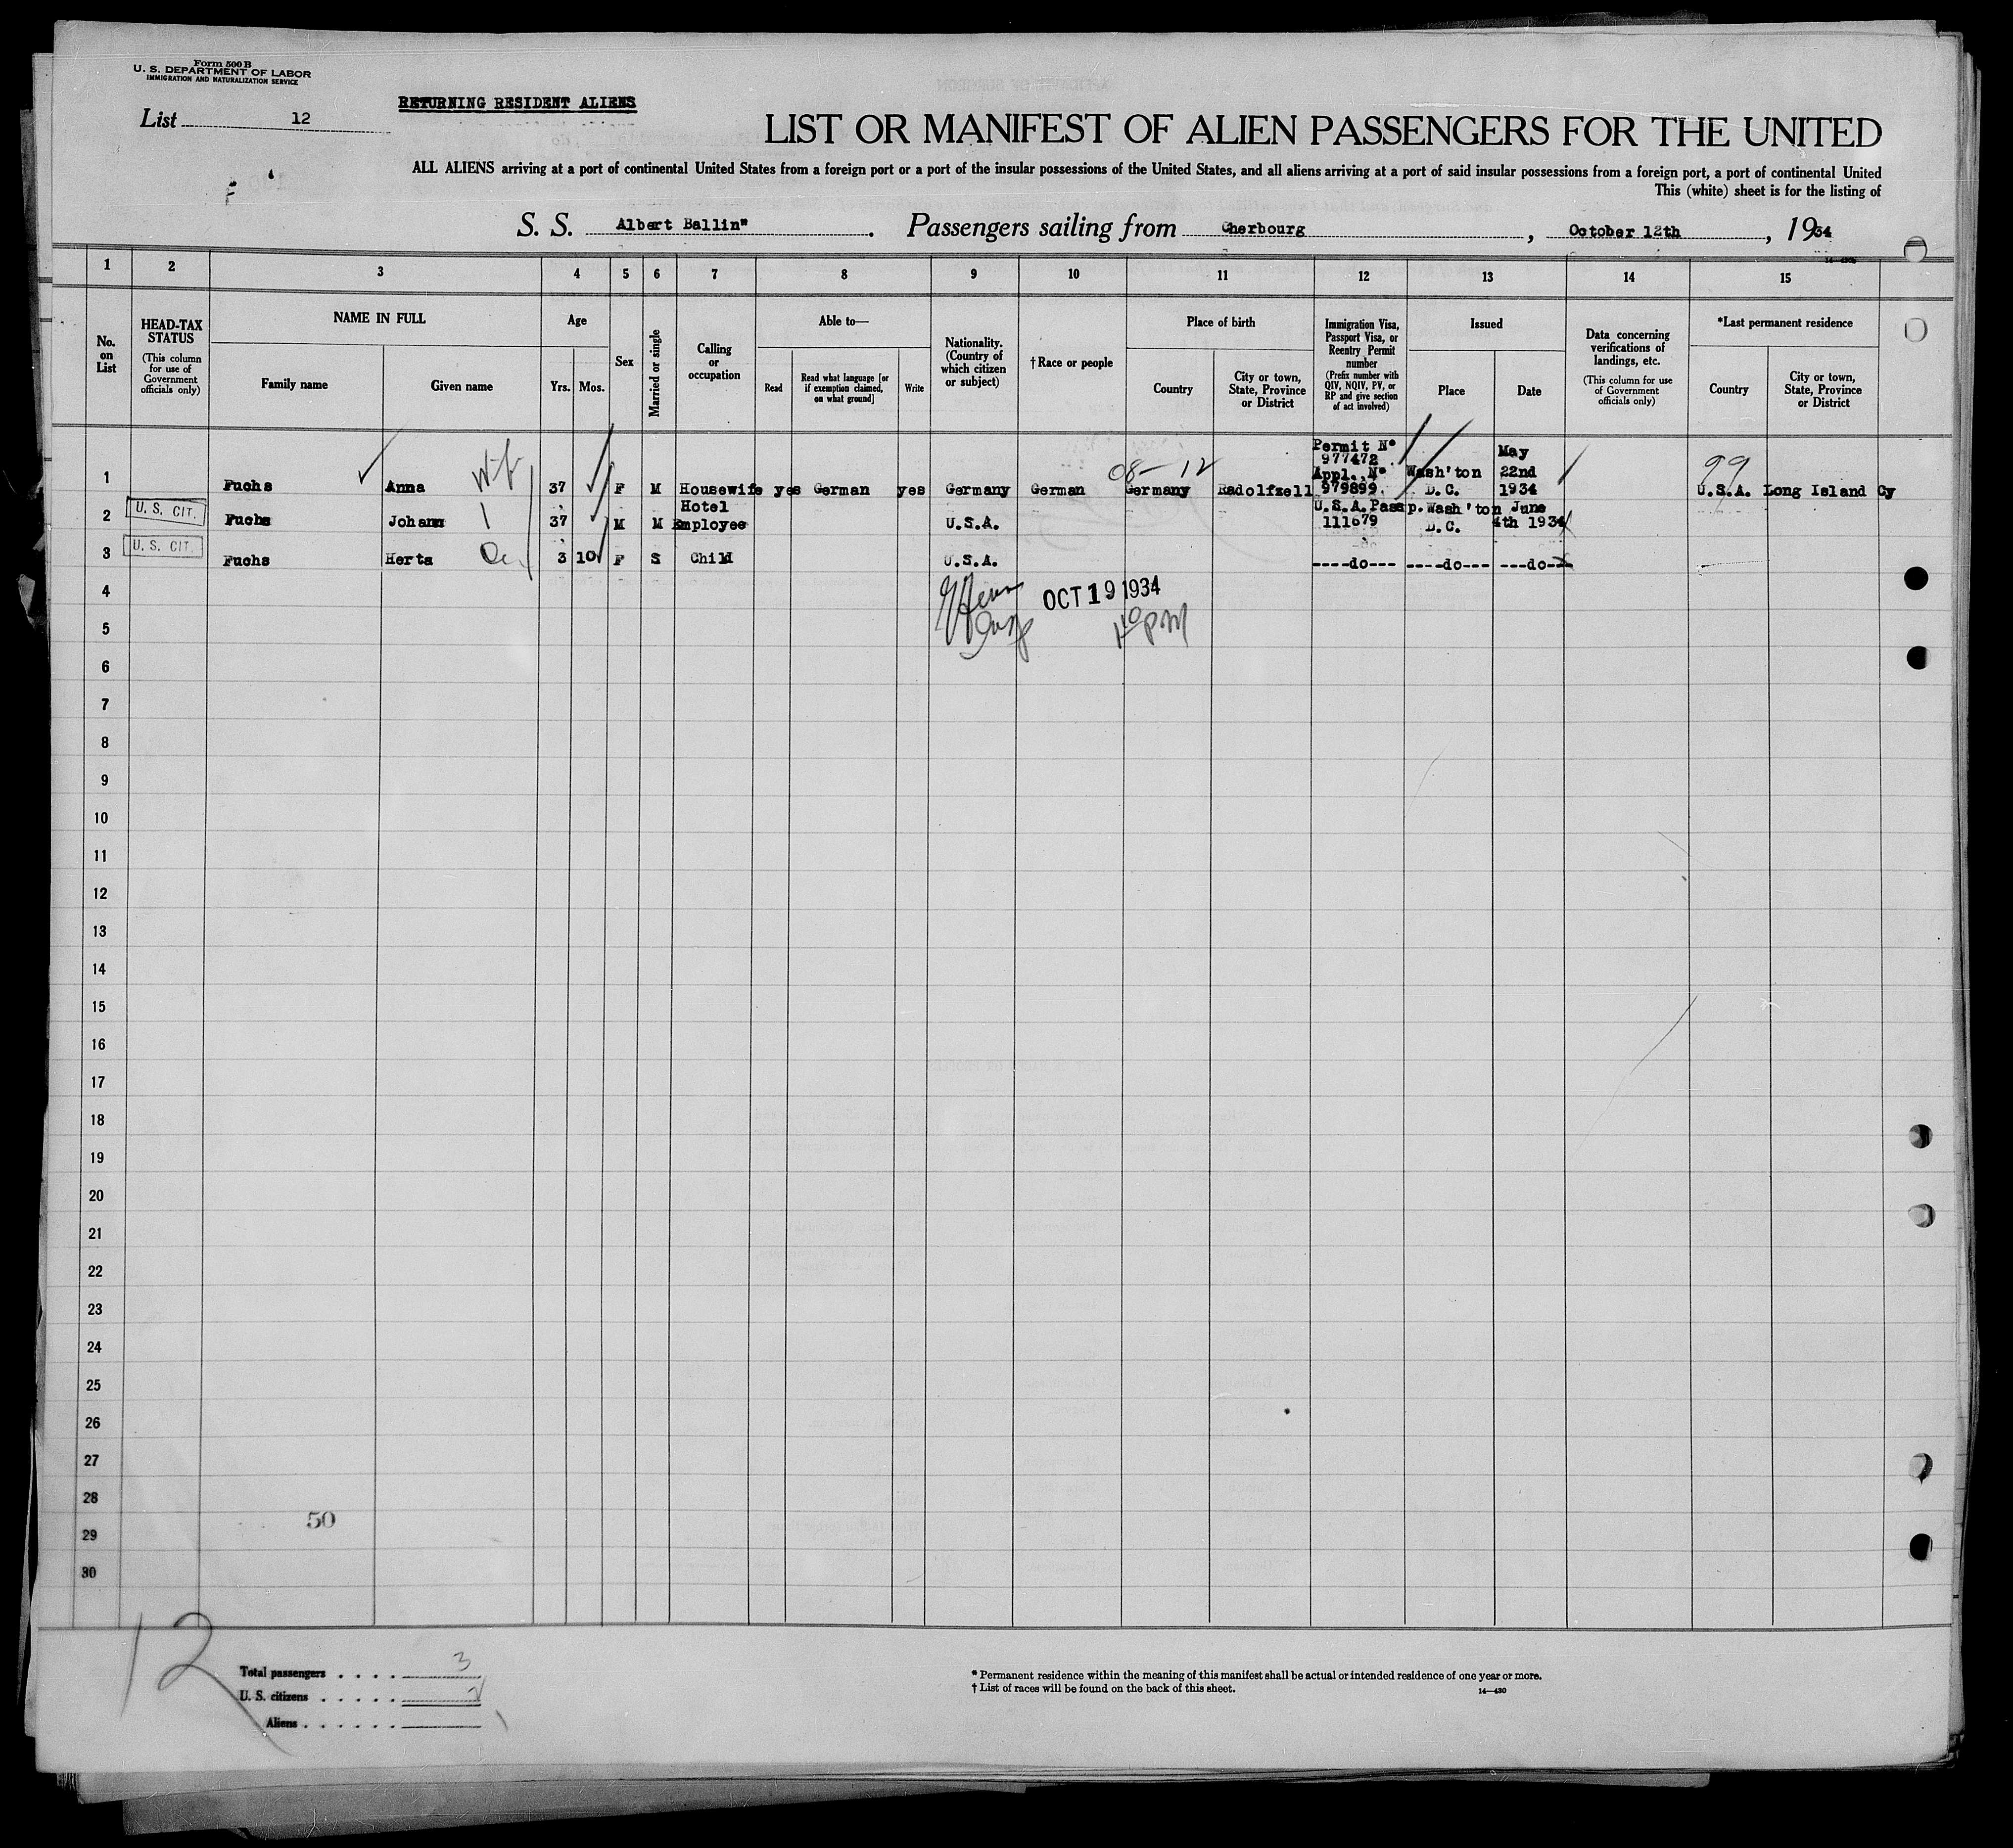 Form 500 B
U. S. DEPARTMENT OF LABOR
IMMIGRATION AND NATURALIZATION SERVICE
List 12
RETURNING RESIDENT ALIENS
LIST OR MANIFEST OF ALIEN PASSENGERS FOR THE UNITED
ALL ALIENS arriving at a port of continental United States from a foreign port or a port of the insular possessions of the United States, and all aliens arriving at a port of said insular possessions from a foreign port, a port of continental United
This (white) sheet is for the listing of
S. S. Albert Ballin" . Passengers sailing from Cherbourg , October 12th , 1934
1 2 3 4 5 6 7 8 9 10 11 12 13 14 15
No. on List
HEAD-TAX STATUS
(This column for use of Government officials only)
NAME IN FULL
Family name Given name
Age
Yrs. Mos.
Sex
Married or single
Calling or occupation
Able to—
Read
Read what language [or if exemption claimed, on what ground]
Write
Nationality. (Country of which citizen or subject)
† Race or people
Place of birth
Country
City or town, State, Province or District
Immigration Visa, Passport Visa, or Reentry Permit number
(Prefix number with QIV, NQIV, PV, or RP and give section of act involved)
Issued
Place Date
Data concerning verifications of landings, etc.
(This column for use of Government officials only)
*Last permanent residence
Country
City or town, State, Province or District
08-12
99
Permit Nº 977472 Appl. Nº 979899
1 Fuchs Anna 37 F M Housewife yes German yes Germany German Germany Radolfzell Wash'ton D.C. May 22nd 1934 U.S.A. Long Island Cy
U. S. CIT.
2 Fuchs Johann 37 M M Hotel Employee U.S.A. U.S.A. Passp. 111679 Wash'ton D.C. June 4th 1934
U. S. CIT.
3 Fuchs Herta 3 10 F S Child U.S.A. ----do--- ----do--- ---do---
4
OCT 19 1934
5
PM
6
7
8
9
10
11
12
13
14
15
16
17
18
19
20
21
22
23
24
25
26
27
28
50
29
30
12
Total passengers . . . . 3
U. S. citizens . . . . . 2
Aliens . . . . . .
* Permanent residence within the meaning of this manifest shall be actual or intended residence of one year or more.
† List of races will be found on the back of this sheet.
14—430